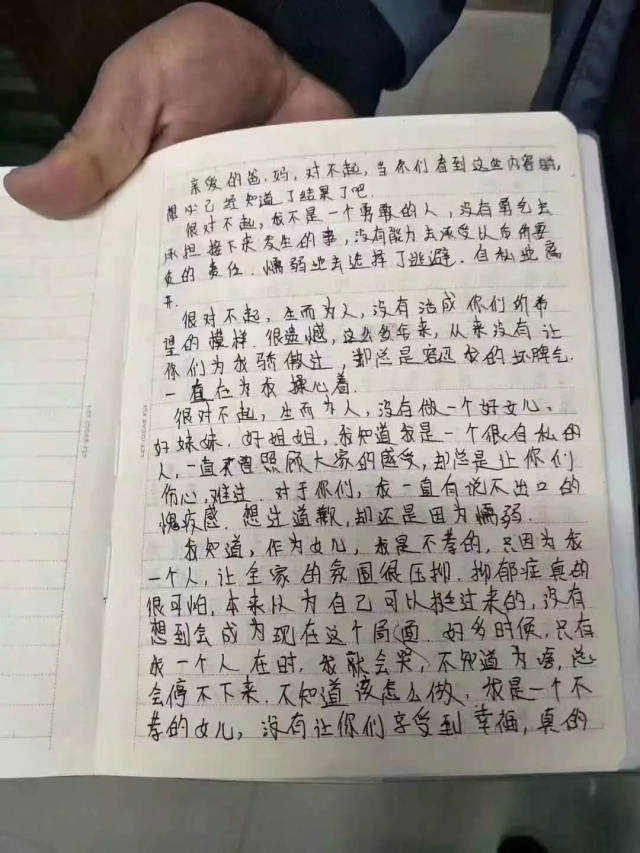 亲爱的爸.妈,对不起,当你们看到这些内容时,
想必已经知道了结果了吧.
很对不起,我不是一个勇敢的人,没有勇气去
承担接下来发生的事,没有能力去承受以后所要
负的责任.懦弱地去选择了逃避.自私地离
开.
很对不起,生而为人,没有活成你们所希
望的模样.很遗憾,这么多年来,从来没有让
你们为我骄傲过,却总是容忍我的坏脾气.
一直在为我操心着.
很对不起,生而为人,没有做一个好女儿、
好妹妹.好姐姐,我知道我是一个很自私的
人,一直不曾照顾大家的感受,却总是让你们
伤心,难过.对于你们,我一直有说不出口的
愧疚感.想过道歉,却还是因为懦弱.
我知道,作为女儿,我是不孝的,只因为我
一个人,让全家的氛围很压抑.抑郁症真的
很可怕,本来以为自己可以挺过来的,没有
想到会成为现在这个局面.好多时候,只有
我一个人在时,我就会哭,不知道为啥,总
会停不下来.不知道该怎么做,我是一个不
孝的女儿,没有让你们享受到幸福,真的